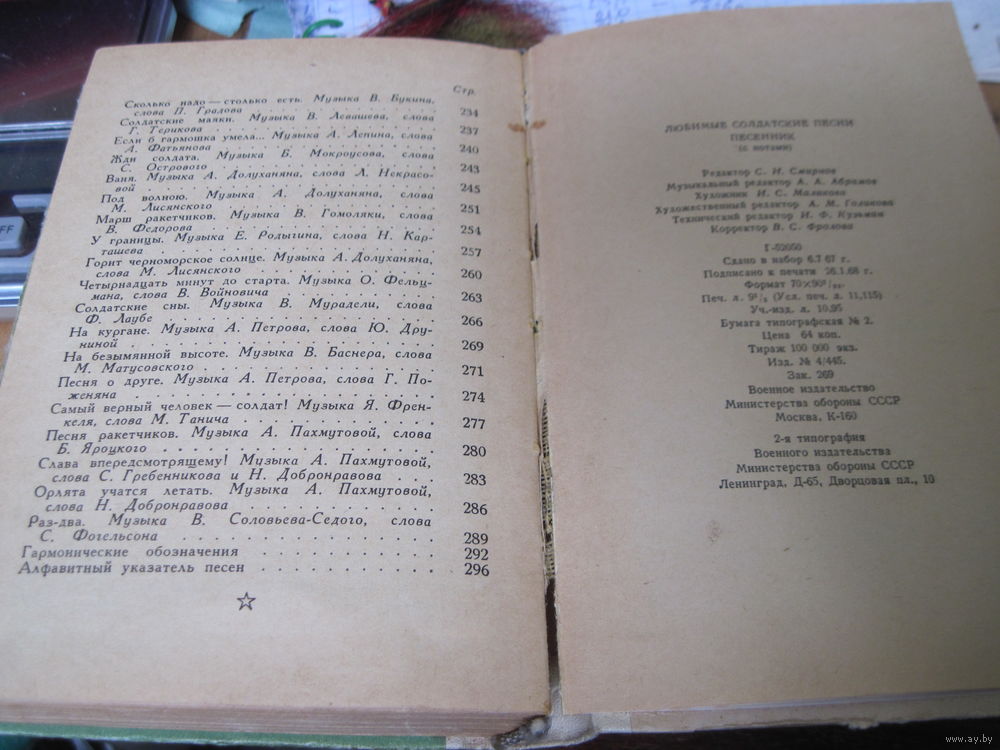 Стр.
Сколько надо — столько есть. Музыка В. Букина,
слова П. Градова . . . . . . . . . . . . 234
Солдатские маяки. Музыка В. Левашева, слова
Г. Терикова . . . . . . . . . . . . 237
Если б гармошка умела... Музыка А. Лепина, слова
А. Фатьянова . . . . . . . . . . . . 240
Жди солдата. Музыка Б. Мокроусова, слова
С. Острового . . . . . . . . . . . . 243
Ваня. Музыка А. Долуханяна, слова Л. Некрасо-
вой . . . . . . . . . . . . 245
Под волною. Музыка А. Долуханяна, слова
М. Лисянского . . . . . . . . . . . . 251
Марш ракетчиков. Музыка В. Гомоляки, слова
В. Федорова . . . . . . . . . . . . 254
У границы. Музыка Е. Родыгина, слова Н. Кар-
ташева . . . . . . . . . . . . 257
Горит черноморское солнце. Музыка А. Долуханяна,
слова М. Лисянского . . . . . . . . . . . . 260
Четырнадцать минут до старта. Музыка О. Фельц-
мана, слова В. Войновича . . . . . . . . . 263
Солдатские сны. Музыка В. Мурадели, слова
Ф. Лаубе . . . . . . . . . . . . 266
На кургане. Музыка А. Петрова, слова Ю. Дру-
ниной . . . . . . . . . . . . 269
На безымянной высоте. Музыка В. Баснера, слова
М. Матусовского . . . . . . . . . . . . 271
Песня о друге. Музыка А. Петрова, слова Г. По-
женяна . . . . . . . . . . . . 274
Самый верный человек — солдат! Музыка Я. Френ-
келя, слова М. Танича . . . . . . . . . . 277
Песня ракетчиков. Музыка А. Пахмутовой, слова
Б. Яроцкого . . . . . . . . . . . . 280
Слава впередсмотрящему! Музыка А. Пахмутовой,
слова С. Гребенникова и Н. Добронравова . . . 283
Орлята учатся летать. Музыка А. Пахмутовой,
слова Н. Добронравова . . . . . . . . . . 286
Раз-два. Музыка В. Соловьева-Седого, слова
С. Фогельсона . . . . . . . . . . . . 289
Гармонические обозначения . . . . . . . . . . 292
Алфавитный указатель песен . . . . . . . . . . 296
ЛЮБИМЫЕ СОЛДАТСКИЕ ПЕСНИ
ПЕСЕННИК
(с нотами)
Редактор С. И. Смирнов
Музыкальный редактор А. А. Абрамов
Художник И. С. Маликова
Художественный редактор А. М. Голикова
Технический редактор И. Ф. Кузьмин
Корректор В. С. Фролова
Г-52050
Сдано в набор 6.7.67 г.
Подписано к печати 26.1.68 г.
Формат 70×90¹/₃₂.
Печ. л. 9⁴/₈ (Усл. печ. л. 11,115)
Уч.-изд. л. 10,95
Бумага типографская № 2.
Цена 64 коп.
Тираж 100 000 экз.
Изд. № 4/445.
Зак. 269
Военное издательство
Министерства обороны СССР
Москва, К-160
2-я типография
Военного издательства
Министерства обороны СССР
Ленинград, Д-65, Дворцовая пл., 10
OFF
www.ay.by